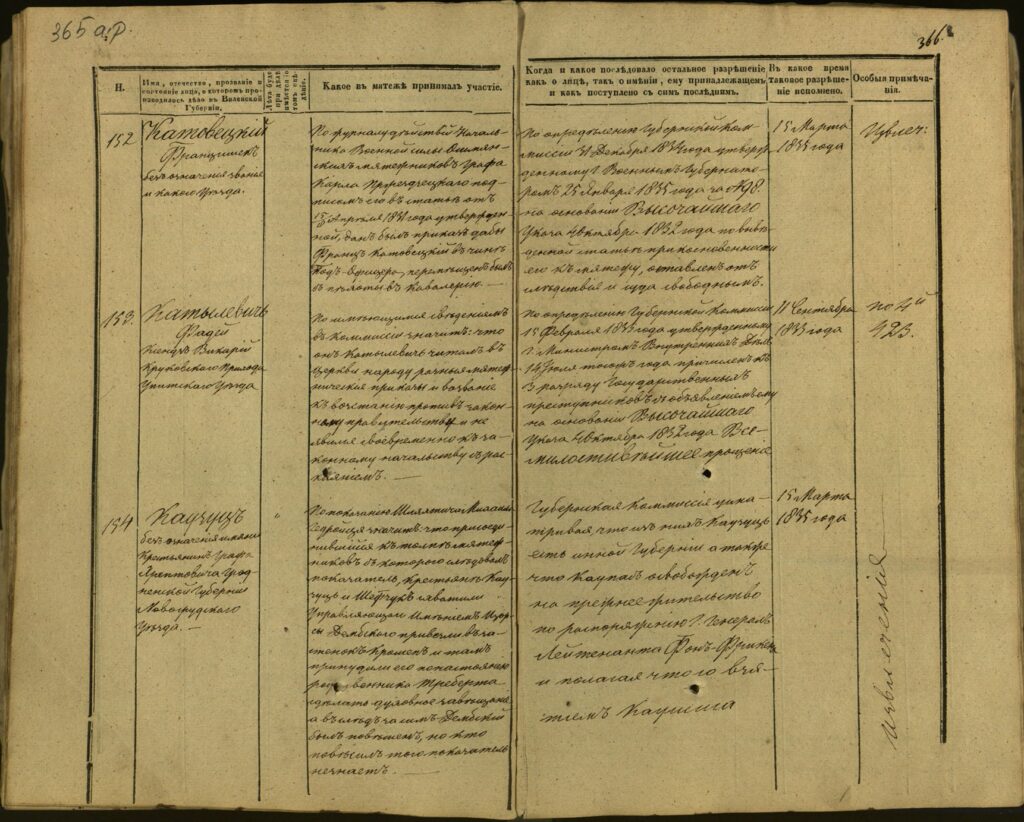 365 а.р.
366.
Н.
Имя, отечество, прозваніе и
состояніе лица, о которомъ про-
изводилось дѣло въ Виленской
Губерніи.
Какое въ матежѣ принималъ участіе.
Когда и какое послѣдовало остальное разрѣшеніе
какъ о лицѣ, такъ о имѣніи, ему принадлежащемъ
и какъ поступлено съ симъ послѣднимъ.
Въ какое время
таковое разрѣше-
ніе исполнено.
Особыя примѣча-
нія.
152
Катовецкій
Францишекъ
безъ означенія званія
и какого уѣзда.
По журналу дѣйствій Началь-
ника Военной силы
мятежниковъ Графа
Карла Пржездзецкаго под-
писомъ его въ статьѣ отъ
Апрѣля 1831 года утвержден-
ной, данъ былъ приказъ дабы
Францъ Катовецкій въ чинѣ
Подъ-Офицера, перемѣщенъ былъ
въ Кавалерію.—
По опредѣленію Губернской Ком-
миссіи 31 Декабря 1834 года утверж-
денному Г. Военнымъ Губернато-
ромъ 25 Января 1835 года за № 98.
на основаніи Высочайшаго
Указа 4 Октября 1832 года по выве-
денной статьѣ прикосновенности
его къ мятежу, оставленъ отъ
слѣдствія и суда свободнымъ.
15 Марта
1835 года
153.
Катылевичъ
Фадей
Ксендзъ Викарій
Круковскаго Прихода
Упитскаго Уѣзда
По имѣющимся свѣденіямъ
въ Коммисіи значитъ: что
онъ Катылевичъ читалъ въ
церкви народу разныя мятеж-
ническіе приказы и воззваніе
къ возстанію противъ закон-
ному правительству и не
явился своевременно къ за-
конному начальству съ рас-
каяніемъ.—
По опредѣленію Губернской Коммисіи
15 Февраля 1833 года утвержденному
Г. Министромъ Внутреннихъ Дѣлъ
14 Іюля того года причисленъ къ
3 разряду Государственныхъ
преступниковъ съ объявленіемъ ему
на основаніи Высочайшаго
Указа 4 Октября 1832 года Все-
милостивѣйшее прощеніе
11 Сентября
1833 года
по 2й
423.
154
Каучуцъ
безъ означенія имени
Крестьянинъ Графа
Хрептовича Грод-
ненской Губерніи
Новогрудскаго
Уѣзда.—
По показанію Шляхтича
значитъ: что присое-
динившійся къ толпѣ мятеж-
никовъ
показатель, крестьянъ Кау-
чуцъ и Шефчукъ схватили
Управляющаго Имѣніемъ
Дембскаго привезли въ за-
стенокъ Кроменъ и тамъ
принудили его
сдѣлать духовное завѣщаніе
а вслѣдъ за симъ Дембскій
былъ повѣшенъ, но кто
повѣсилъ того показатель
незнаетъ.—
Губернская Коммисія усма-
тривая, что
есть иной Губерніи а также
что Каучуцъ освобожденъ
на прежнее жительство
по распоряженію Г. Генералъ
Лейтенанта Фонъ-
и полагая что го взя-
тіемъ
15 Марта
1835 года
извлеченія